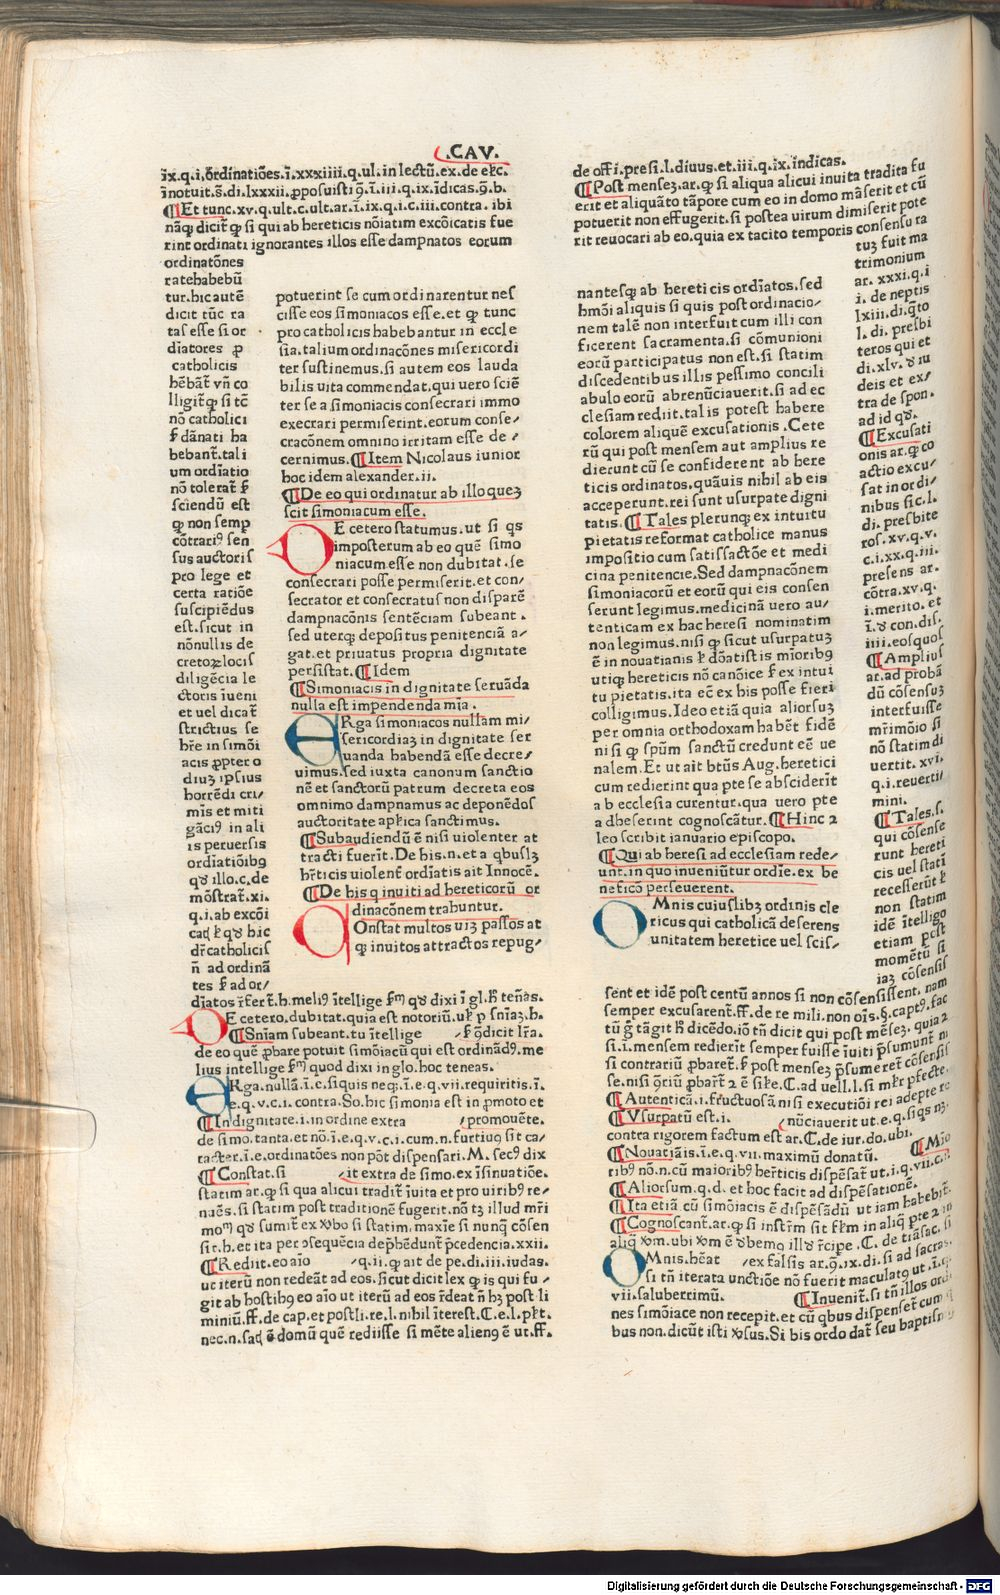 .CAV.
ix.q.i,ordinatiões.ī.xxxiiii.q.ul.in lectū.ex.de
inotuit.s̄.di.lxxxii.ꝓposuisti q̄.ī.iii.q.ix.īdicas.q̄.b.
¶Et tunc.xv.q.ult.c.ult.ar.ī.ix.q.i.c.iii.contra.ibi
nāqꝫ dicit̄ ꝙ si qui ab hereticis nōiatim excōicatis fue
rint ordinati ignorantes illos esse dampnatos eorum
ordinatōnes
ratehabebū
tur.hic autē
dicit tūc ra
tas esse si or
dīatores ꝓ
catholicis
hēbāt̄ vñ co
lligit̄qꝫ si tē
nō catholici
s̄ dānati ha
bebant̄.tali
um ordīatio
nō tolerat̄ s̄
sciendū est
ꝙ non semp
cōtrariꝰ sen
sus auctoris
pro lege et
certa ratiōe
suscipiēdus
est.sicut in
nōnullis de
cretoꝝ locis
diligēcia le
ctoris īueni
et uel dicat̄
strictius se
hr̄e in simōi
acis ꝓpter o
diuꝫ ipsius
horrēdi cri/
mīs et miti
gāciꝰ in ali
is peruersis
ordīatiōibꝰ
qđ illo.c.de
mōstrat̄.xi.
q.i.ab excōi
hic
dr̄ catholicis
ñ ad ordinā
tes s̄ ad or/
potuerint se cum ordinarentur nes
cisse eos simoniacos esse.et ꝙ tunc
pro catholicis habebantur in eccle
sia.talium ordinacōnes misericordi
ter sustinemus.si autem eos lauda
bilis uita commendat.qui uero sciē
ter se a simoniacis consecrari immo
execrari permiserint.eorum conse/
cracōnem omnino irritam esse de/
cernimus.¶Item Nicolaus iunior
hoc idem alexander.ii.
¶De eo qui ordinatur ab illo queꝫ
scit simoniacum esse.
DE cetero statumus.ut si qs
imposterum ab eo quē simo
niacum esse non dubitat.se
consecrari posse permiserit.et con/
secrator et consecratus non disparē
dampnacōnis sentēciam subeant.
sed uterqꝫ depositus penitenciā a/
gat.et priuatus propria dignitate
persistat.¶Idem
¶Simoniacis in dignitate seruāda
nulla est impendenda mīa.
ERga simoniacos nullam mi/
sericordiaꝫ in dignitate ser
uanda habendā esse decre/
uimus.sed iuxta canonum sanctio
nē et sanctorū patrum decreta eos
omnimo dampnamus ac deponēdos
auctoritate apl̄ica sanctimus.
¶Subaudiendū ē nisi uiolenter at
tracti fuerīt.De his.n.et a qbuslꝫ
hr̄ticis uiolent̄ ordīatis ait Innocē.
¶De his q inuiti ad hereticorū or
dinacōnem trahuntur.
COnstat multos uiꝫ passos at
ꝙ inuitos attractos repug/
dīatos rr̄fert̄.h.meliꝰ ītellige sm̄ qđ dixi ī gl.h̄ teñas.
DE cetero.dubitat.quia est notoriū.ul̄ p sñiaꝫ.h.
¶Sñiam subeant.tu ītellige /s̄ q̄dicit lr̄a.
de eo quē ꝓbare potuit simōiacū qui est ordinādꝰ.me
lius intellige sm̄ quod dixi in glo.hoc teneas.
ERga.nullā.ī.e.si quis neqꝫ.ī.e.q.vii.requiritis.ī.
e.q.v.c.i.contra.So.hic simonia est in ꝓmoto et
¶In dignitate.i.in ordine extra /promouēte.
de simo.tanta.et nō.ī.e.q.v.c.i.cum.n.furtiuꝰ sit ca/
racter.ī.e.ordinatōes non pōt dispensari.M.secꝰ dix
¶Constat.si /it extra de simo.ex īsinuatiōe.
statim ar.ꝙ si qua alicui tradit̄ īuita et pro uiribꝰ re/
nuēs.si statim post traditionē fugerit.nō tꝫ illud mr̄i
moᵐ qđ sumit̄ ex ꝟbo si statim.maxīe si nunqꝫ cōsen
sit.h.et ita per ɔsequēcia dep̄hēdunt̄ p̄cedencia.xxii.
¶Rediit.eo aīo /q.ii.ꝙ ait de pe.di.iii.iudas.
ut iterū non redeāt ad eos.sicut dicit lex ꝙ is qui fu/
git ab hostibꝰ eo aīo ut iterū ad eos r̄deat ñ hꝫ post li
miniū.ff.de cap.et postli.re.l.nihil īterest.C.e.l.
nec.n. ē domū quē rediisse si mēte alienꝰ ē ut.ff.
de offi.presi.l.diuus.et.iii.q.ix.indicas.
¶Post menseꝫ.ar.ꝙ si aliqua alicui inuita tradita fu
erit et aliquāto tāpore cum eo in domo māserit et cū
potuerit non effugerit.si postea uirum dimiserit pote
rit reuocari ab eo.quia ex tacito temporis consensu ra
tuꝫ fuit ma
trimonium
ar.xxxi.q.i
i.de neptis
lxiii.di.q̄to
l.di.presbi
teros qui et
di.xlv.đ iu
deis et ex/
tra de spon.
ad id qđ.
¶Excusati
onis ar.ꝙ co
actio excu/
sat in ordi/
nibus sic.l.
di.presbite
ros.xv.q.v.
c.i.xx.q.iii.
presens ar.
cōtra.xv.q.
i.merito.et
ī.đ con.dis.
iiii.eos quos
¶Amplius
ar.ad probā
dū cōsensuꝫ
interfuisse
mr̄imōio si
nō statim di
uertit.xvi.
q.i.reuerti/
mini.
¶Tales.s.
qui cōsense
runt hereti
cis uel stati
recesserūt s̄
non statim
idē ītelligo
etiam post
momētū si
iaꝫ cōsensis
nantesqꝫ ab hereticis ordīatos.sed
hmōi aliquis si quis post ordinacio/
nem talē non interfuit cum illi con
ficerent sacramenta.si cōmunioni
eorū participatus non est.si statim
discedentibus illis pessimo concili
abulo eorū abrenūciauerit.si ad ec
clesiam rediit.talis potest habere
colorem aliquē excusationis.Cete
rū qui post mensem aut amplius re
dierunt cū se confiderent ab here
ticis ordinatos.quāuis nihil ab eis
acceperunt.rei sunt usurpate digni
tatis.¶Tales plerunqꝫ ex intuitu
pietatis reformat catholice manus
impositio cum satisfactōe et medi
cina penitencie.Sed dampnacōnem
simoniacorū et eorū qui eis consen
serunt legimus.medicinā uero au/
tenticam ex hac heresi nominatim
non legimus.nisi ꝙ sicut usurpatuꝫ
ē in nouatianis ł dōatistis mīoribꝰ
utiqꝫ hereticis nō canōice s̄ ex intui
tu pietatis.ita eē ex his posse fieri
colligimus.Ideo etiā quia aliorsuꝫ
per omnia orthodoxam habēt fidē
nisi ꝙ spm̄ sanctū credunt eē ue
nalem.Et ut ait btūs Aug.heretici
cum redierint qua pte se absciderīt
ab ecclesia curentur.qua uero pte
adheserint cognoscātur.¶Hinc ꝛ
leo scribit ianuario episcopo.
¶Qui ab heresi ad ecclesiam rede/
unt.in quo inueniūtur ordīe.ex be
neficō perseuerent.
OMnis cuiuslibꝫ ordinis cle
ricus qui catholicā deserens
unitatem heretice uel scis/
sent et idē post centū annos si non cōsensissent.nam
semper excusarent̄.ff.de re mili.non oīs.§.captꝰ.fac
tū g̃ tāgit h̄ dicēdo.iō tñ dicit qui post mēseꝫ.quia ꝛ
si.i.mensem redierīt semper fuisse īuiti p̄sumunt̄ n
si contrariū ꝓbaret̄.s̄ post menseꝫ p̄sumeret̄ cōsensis
se.nisi q̄riū ꝓbar̄t̄ ꝛ ē sil̄e.C.ad uell.l.si mīr pfecte.
¶Autenticā.i.fructuosā nisi executiōi rei adepte re
¶Vsurpatū est.i. /nūciauerit ut.e.q.si qs nꝫ.
contra rigorem factum est ar.C.de iur.do.ubi.
¶Nouatiāis.ī.e.q.vii.maximū donatū. ¶Mīo
ribꝰ nō.n.cū maioribꝰ hr̄ticis dispēsat̄ ut.i.q.vii.c.
¶Aliorsum.q.d.et hoc facit ad dispēsationē.
¶Ita etiā.cū simōiacis ē dispēsādū ut iam habebit̄.
¶Cognoscant̄.ar.ꝙ si instr̄m sit fl̄m in aliq̄ pte ꝛ in
aliq̄ ꝟm.ubi ꝟm ē đbemꝰ illđ r̄cipe.C.de trāsac.si
OMnis.hēat /ex falsis ar.q̄.ix.di.si ad sacras
si tñ iterata unctiōe nō fuerit maculatꝰ ut.i.q.
vii.saluberrimū. ¶Inuenit̄.si tñ illos ord
nes simōiace non recepit.et cū qbus dispenset̄ cum
bus non.dicūt isti ꝟsus.Si bis ordo dat̄ seu baptism
Digitalisierung gefördert durch die Deutsche Forschungsgemeinschaft - DFG